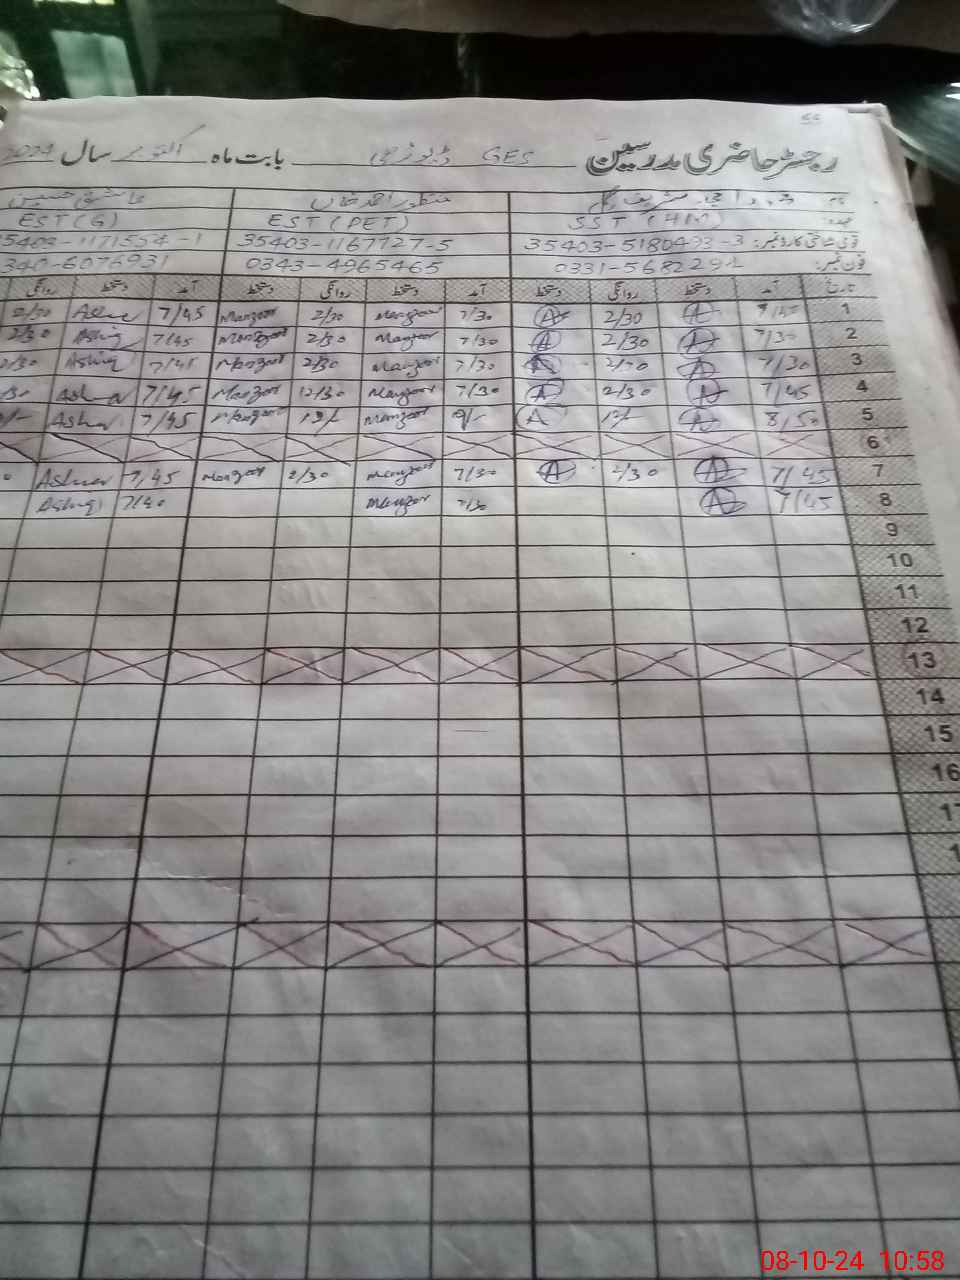 55
رجسٹر حاضری مدرسین GES بابت ماہ اکتوبر سال 2024
نام منظور احمد خان عاشق حسین
عہدہ SST (HM) EST (PET) EST (G)
قومی شناختی کارڈ نمبر: 35403-1167727-5
فون نمبر: 0343-4965465 340-6076931
تاریخ آمد دستخط روانگی دستخط آمد دستخط روانگی دستخط آمد دستخط روانگی
1 7/45 A 2/30 A 7/30 Manzoor 2/30 Manzoor 7/45
2 7/30 A 2/30 A 7/30 Manzoor 2/30 Manzoor 7/45 Ashiq 2/30
3 7/30 A 2/30 A 7/30 Manzoor 2/30 Manzoor Ashiq
4 7/45 A 2/30 A 7/30 Manzoor 12/30 Manzoor 7/45
5 8/50 A A Manzoor Manzoor 7/45
6
7 7/45 A 2/30 A 7/30 Manzoor 2/30 Manzoor 7/45
8 7/45 A 7/30 Manzoor 7/40 Ashiq
9
10
11
12
13
14
15
16
08-10-24 10:58